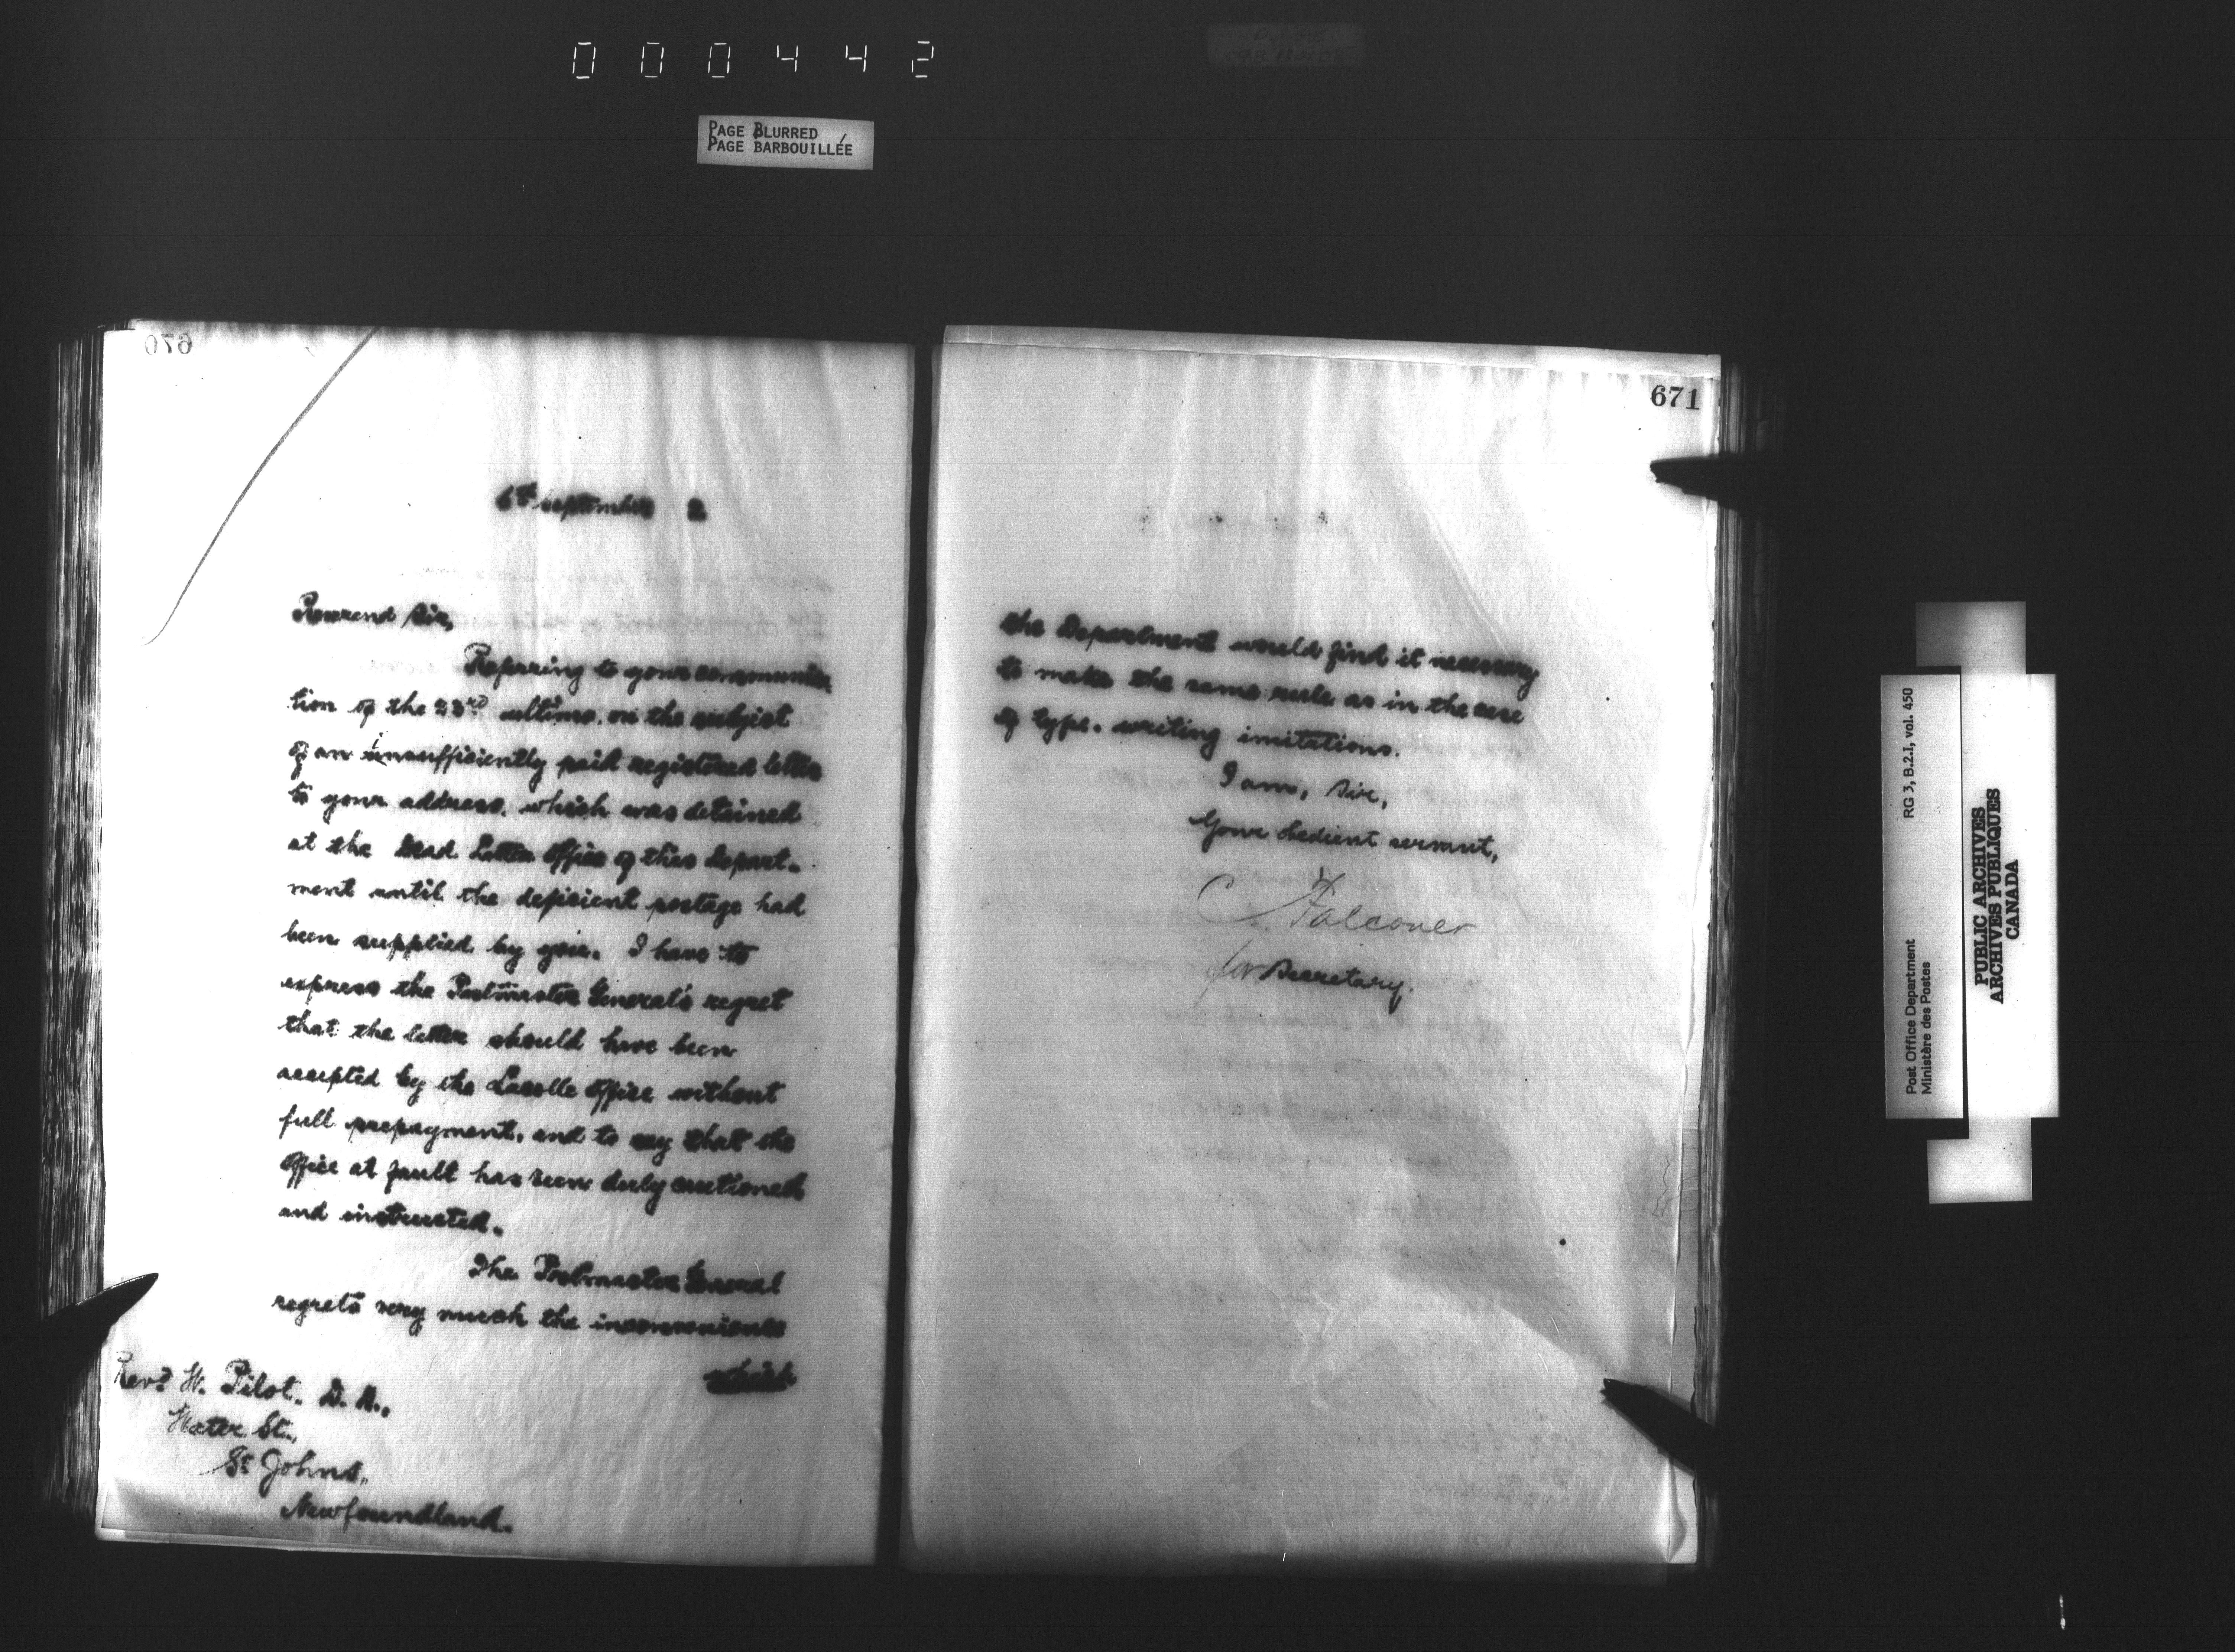 000442
PAGE BLURRED
PAGE BARBOUILLÉE
670
6th September 2
Reverend Sir,
Referring to your communica-
tion of the 23rd ultimo, on the subject
of an insufficiently paid registered letter
to your address, which was detained
at the Dead Letter Office of this Depart-
ment until the deficient postage had
been supplied by you. I have to
express the Postmaster General's regret
that the letter should have been
accepted by the Lacolle Office without
full prepayment, and to say that the
Office at fault has been duly cautioned
and instructed.
The Postmaster General
regrets very much the inconvenience
which
Revd W. Pilot. D.
Water St.,
St Johns,
Newfoundland.
671
the Department would find it necessary
to make the same rule as in the case
of type-writing imitations.
I am, Sir,
Your obedient servant,
C Falconer
for Secretary.
Post Office Department
Ministère des Postes
RG 3, B.2.I, vol. 450
PUBLIC ARCHIVES
ARCHIVES PUBLIQUES
CANADA